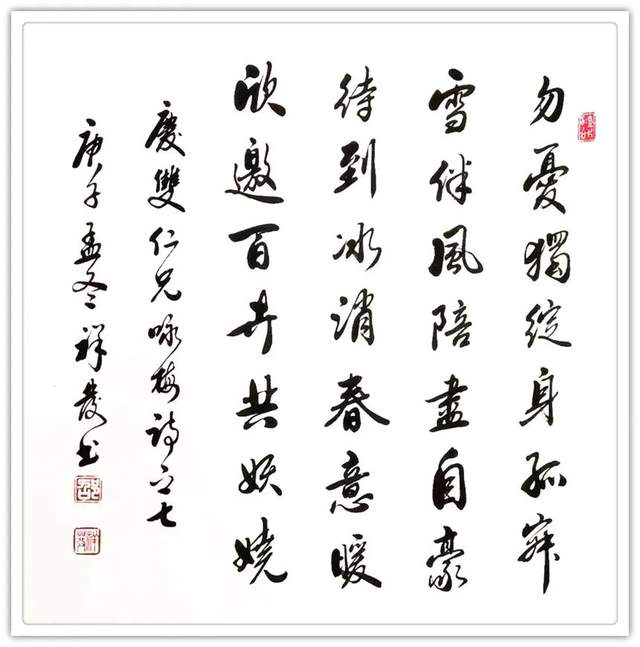 勿憂獨綻身孤寂
雪伴風陪盡自豪
待到冰消春意暖
欣邀百卉共妖嬈
慶雙仁兄咏梅詩之七
庚子孟冬祥發书